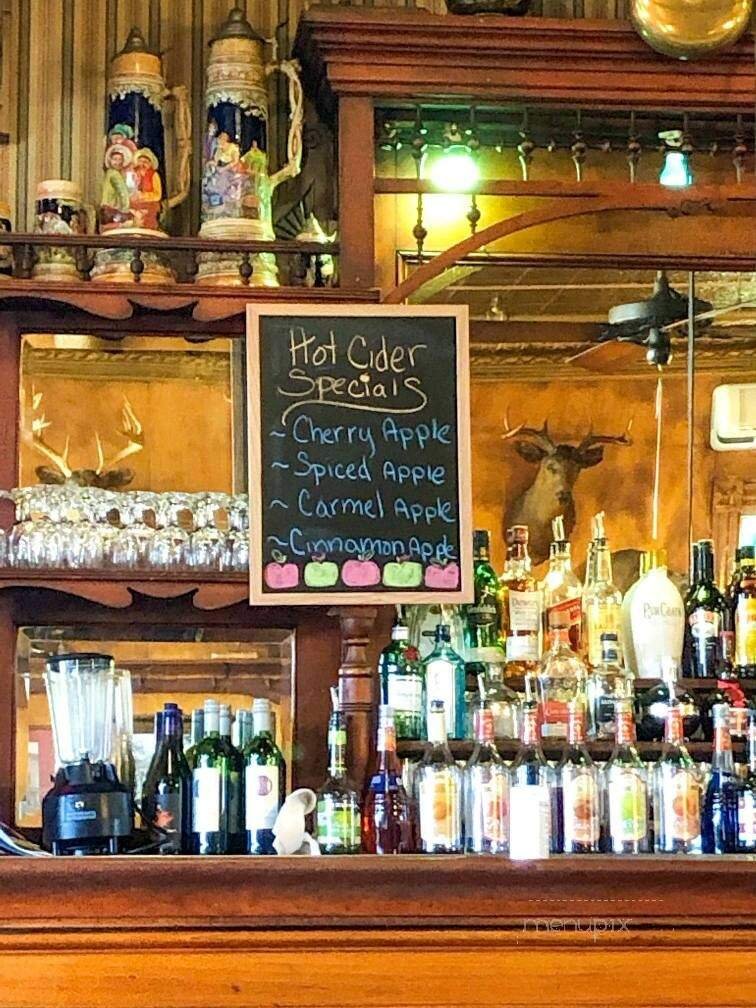 Hot Cider
Specials
~ Cherry Apple
~ Spiced Apple
~ Carmel Apple
~ Cinnamon Apple
RumChata
menupix